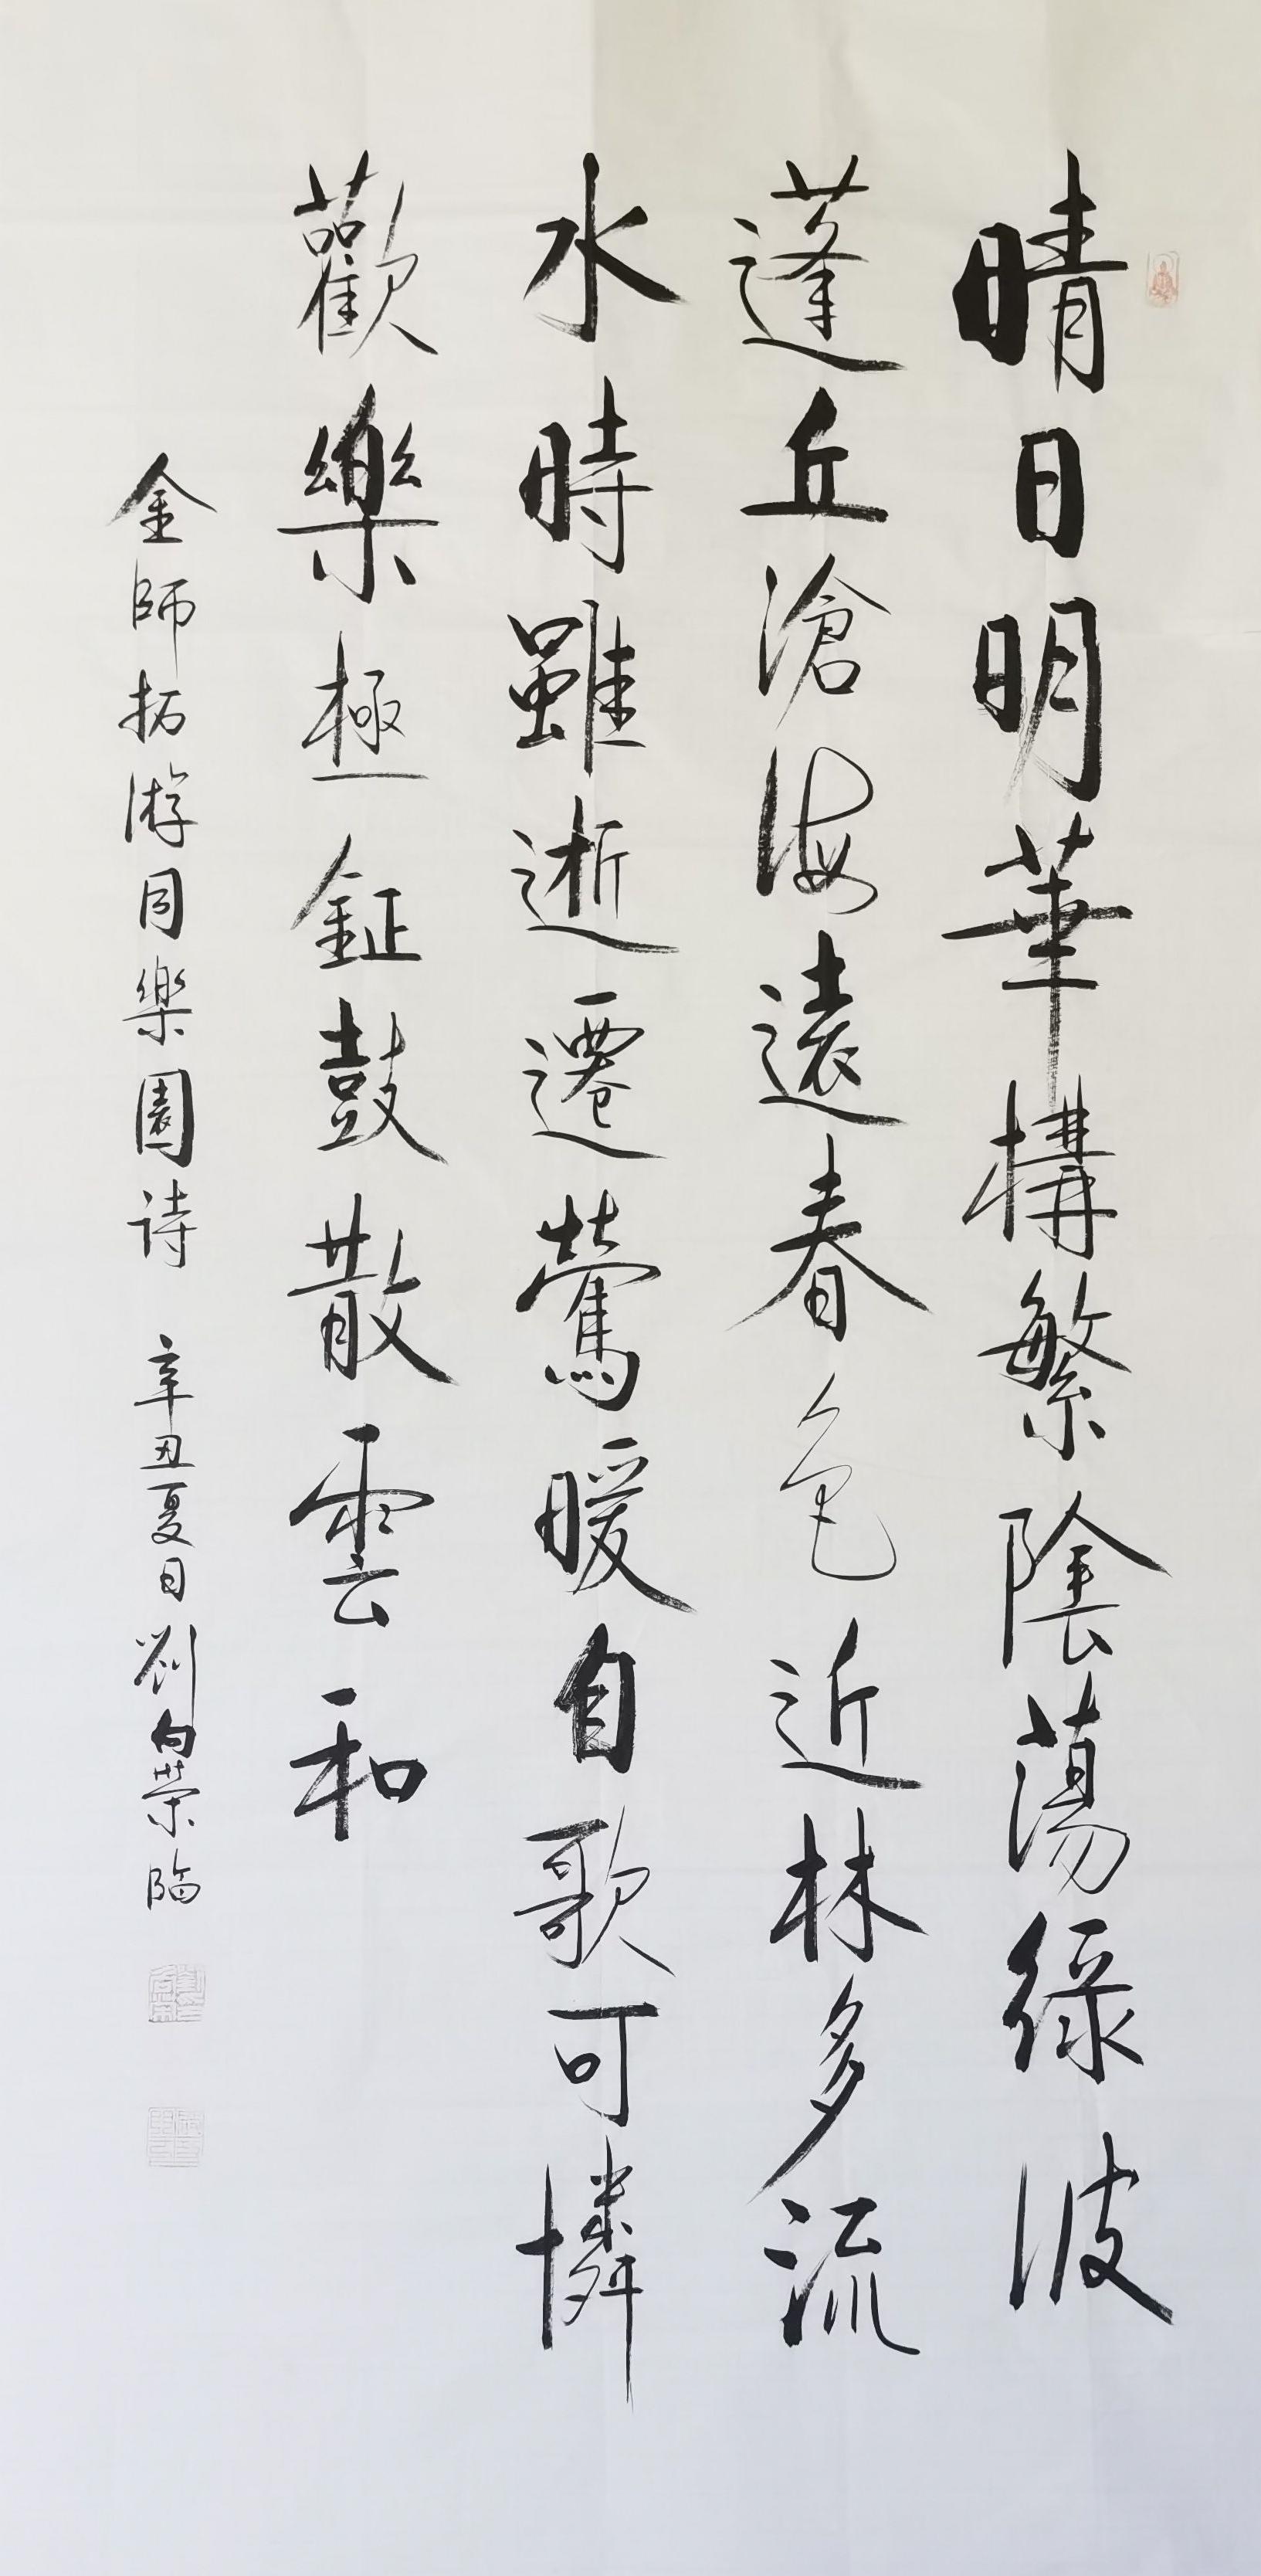 晴日明華構繁陰蕩綠波
蓬丘滄海遠春色近林多流
水時雖逝遷鶯暖自歌可憐
歡樂極鉦鼓散雲和
金師拓游同樂園诗 辛丑夏日劉向榮臨